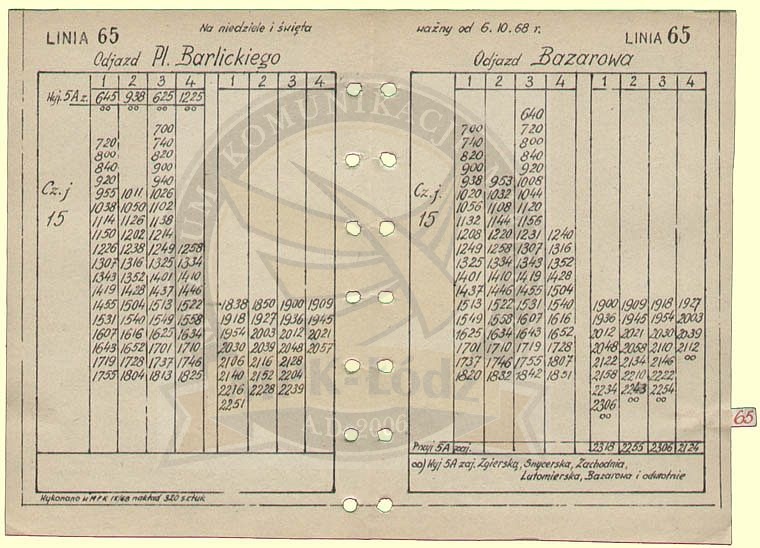 LINIA 65 Na niedziele i święta ważny od 6.10.68 r. LINIA 65
Odjazd Pl. Barlickiego Odjazd Bazarowa
1 2 3 4 1 2 3 4 1 2 3 4 1 2 3 4
Wyj. 5A z. 645 938 625 1225
oo oo oo oo 640
700 700 720
720 740 740 800
800 820 820 840
840 900 900 920
920 940 938 953 1008
Cz.j 955 1011 1026 Cz.j. 1020 1032 1044
15 1038 1050 1102 15 1056 1108 1120
1114 1126 1138 1132 1144 1156
1150 1202 1214 1208 1220 1231 1240
1226 1238 1249 1258 1249 1258 1307 1316
1307 1316 1325 1334 1325 1334 1343 1352
1343 1352 1401 1410 1401 1410 1419 1428
1419 1428 1437 1446 1437 1446 1455 1504
1455 1504 1513 1522 1838 1850 1900 1909 1513 1522 1531 1540 1900 1909 1918 1927
1531 1540 1549 1558 1918 1927 1936 1945 1549 1558 1607 1616 1936 1945 1954 2003
1607 1616 1625 1634 1954 2003 2012 2021 1625 1634 1643 1652 2012 2021 2030 2039
1643 1652 1701 1710 2030 2039 2048 2057 1701 1710 1719 1728 2048 2058 2110 2112
1719 1728 1737 1746 2106 2116 2128 1737 1746 1755 1807 2122 2134 2146 oo
1755 1804 1813 1825 2140 2152 2204 1820 1832 1842 1851 2158 2210 2222
2216 2228 2239 2234 2243 2254
2251 2306 oo oo
oo
Przyj 5A zaj. 2318 2255 2306 2124
oo) Wyj 5A zaj. Zgierską, Snycerska, Zachodnia,
Lutomierska, Bazarowa i odwrotnie
Wykonano w MPK IX/68 nakład 320 sztuk
65
KOMUNIKACJI
K-Łódź
A.D. 2006